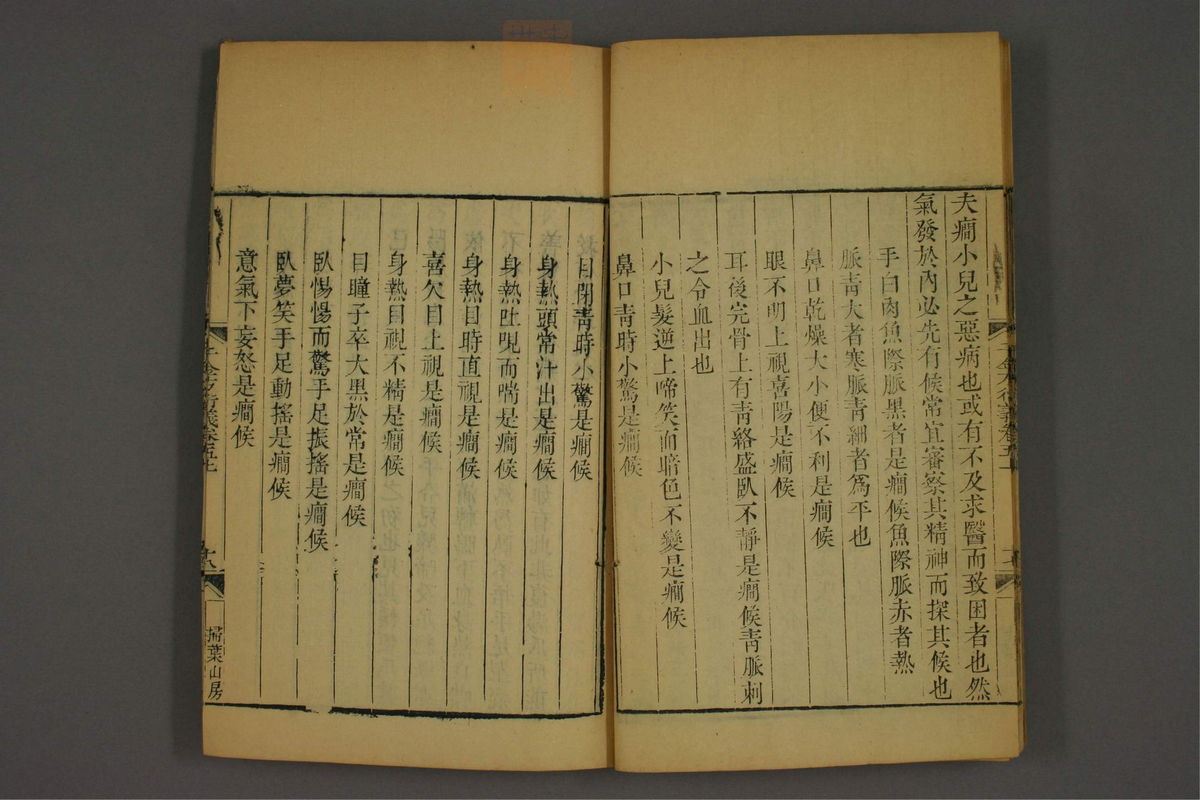 夫癇小兒之惡病也或有不及求醫而致困者也然
氣發於內必先有候常宜審察其精神而探其候也
手白肉魚際脈黑者是癇候魚際脈赤者熱
脈青大者寒脈青細者爲平也
鼻口乾燥大小便不利是癇候
眼不明上視喜陽是癇候
耳後完骨上有青絡盛臥不靜是癇候青脈刺
之令血出也
小兒髮逆上啼笑面暗色不變是癇候
鼻口青時小驚是癇候
目閉青時小驚是癇候
身熱頭常汁出是癇候
身熱吐哯而喘是癇候
身熱目時直視是癇候
喜欠目上視是癇候
身熱目視不精是癇候
目瞳子卒大黑於常是癇候
臥惕惕而驚手足振搖是癇候
臥夢笑手足動搖是癇候
意氣下妄怒是癇候
千金方衍義卷五上
十八
掃葉山房